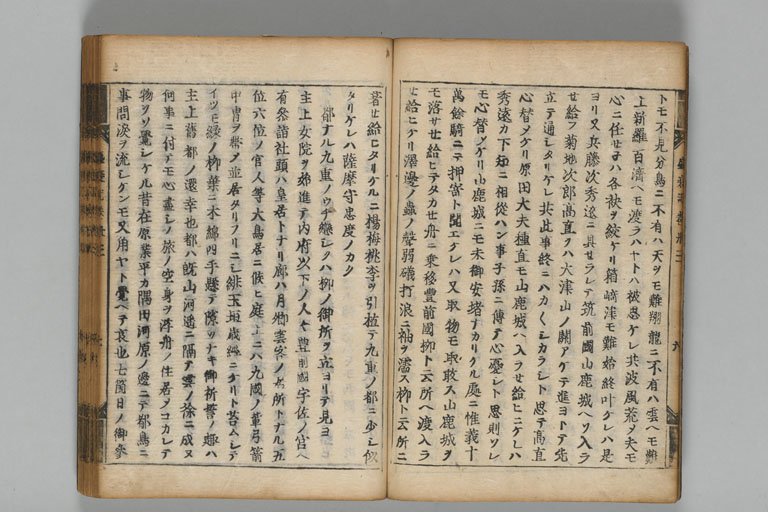 トモ不見分鳥ニ不有ハ天ヲモ難翔龍ニ不有ハ雲ヘモ難
上新羅百濟ヘモ渡ラハヤトハ被思ケレ共波風荒ク夫モ
心ニ任セネハ各袂ヲ絞ケリ箱崎津モ難始終叶ケレハ是
ヨリ又兵藤次秀遠ニ具セラレテ筑前國山鹿城ヘソ入ラ
セ給フ菊地次郎高直ヲハ大津山ノ關アケテ進ヨトテ先
立テ通シタリケレ共此事終ニハカ〱シカラシト思テ高直
心替メケリ原田大夫種直モ山鹿城ヘ入ラセ給ヒニケレハ
秀遠カ下知ニ相從ハン事子孫ニ傳テ心憂シト思則ソレ
モ心替シケリ山鹿城ニモ未御安堵ナカリケル處ニ惟義十
萬餘騎ニテ押寄ト聞エケレハ又取物モ取敢ス山鹿城ヲ
モ落サセ給ヒテタカセ舟ニ乗移豊前國柳ト云所ヘ渡入ラ
セ給ヒケリ澤邊ノ蟲ノ聲弱礒打浪ニ袖ヲ濡ス柳ト云所ニ
著セ給ヒタリケルニ楊梅桃李ヲ引植テ九重ノ都ニ少シ似
タリケレハ薩摩守忠度ノカク
都ナル九重ノウチ戀シクハ柳ノ御所ヲ立ヨリテ見ヨ
主上女院ヲ始進テ内府以下ノ人々豊前國宇佐ノ宮ヘ
有参詣社頭ハ皇居トナリ廊ハ月卿雲客ノ居所トナル五
位六位ノ官人等大鳥居ニ候ヒ庭上ニハ九國ノ輩弓箭
甲冑ヲ帯メ並居タリフリニシ緋玉垣歳經ニケリト苔ムシテ
イツモ緑ノ柳葉ニ木綿四手懸テ隙ツナキ御祈誓ノ趣ハ
主上舊都ノ還幸也都ハ既山河遥ニ隔テ雲ノ徐ニ成ヌ
何事ニ付テモ心盡シノ旅ノ空身ヲ浮舟ノ住居メコカレテ
物ヲソ覺シケル昔在原業平カ隅田河原ノ邊ニテ都鳥ニ
事問涙ヲ流シケンモ又角ヤト覺ヘテ哀也七箇日ノ御参